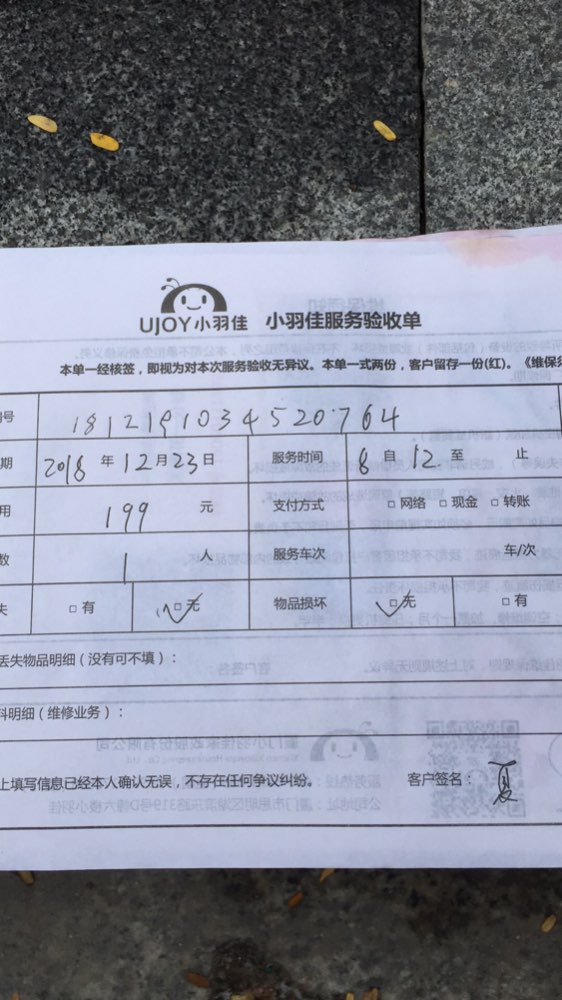 UJOY小羽佳 小羽佳服务验收单
本单一经核签，即视为对本次服务验收无异议。本单一式两份，客户留存一份(红)。《维保须
号 1812191034520764
期 2018 年 12 月 23 日 服务时间 8 自 12 至 止
用 199 元 支付方式 □ 网络 □ 现金 □ 转账
数 1 人 服务车次 车/次
失 □ 有 □ 无 物品损坏 □ 无 □ 有
丢失物品明细（没有可不填）：
料明细（维修业务）：
上填写信息已经本人确认无误，不存在任何争议纠纷。 客户签名： 夏